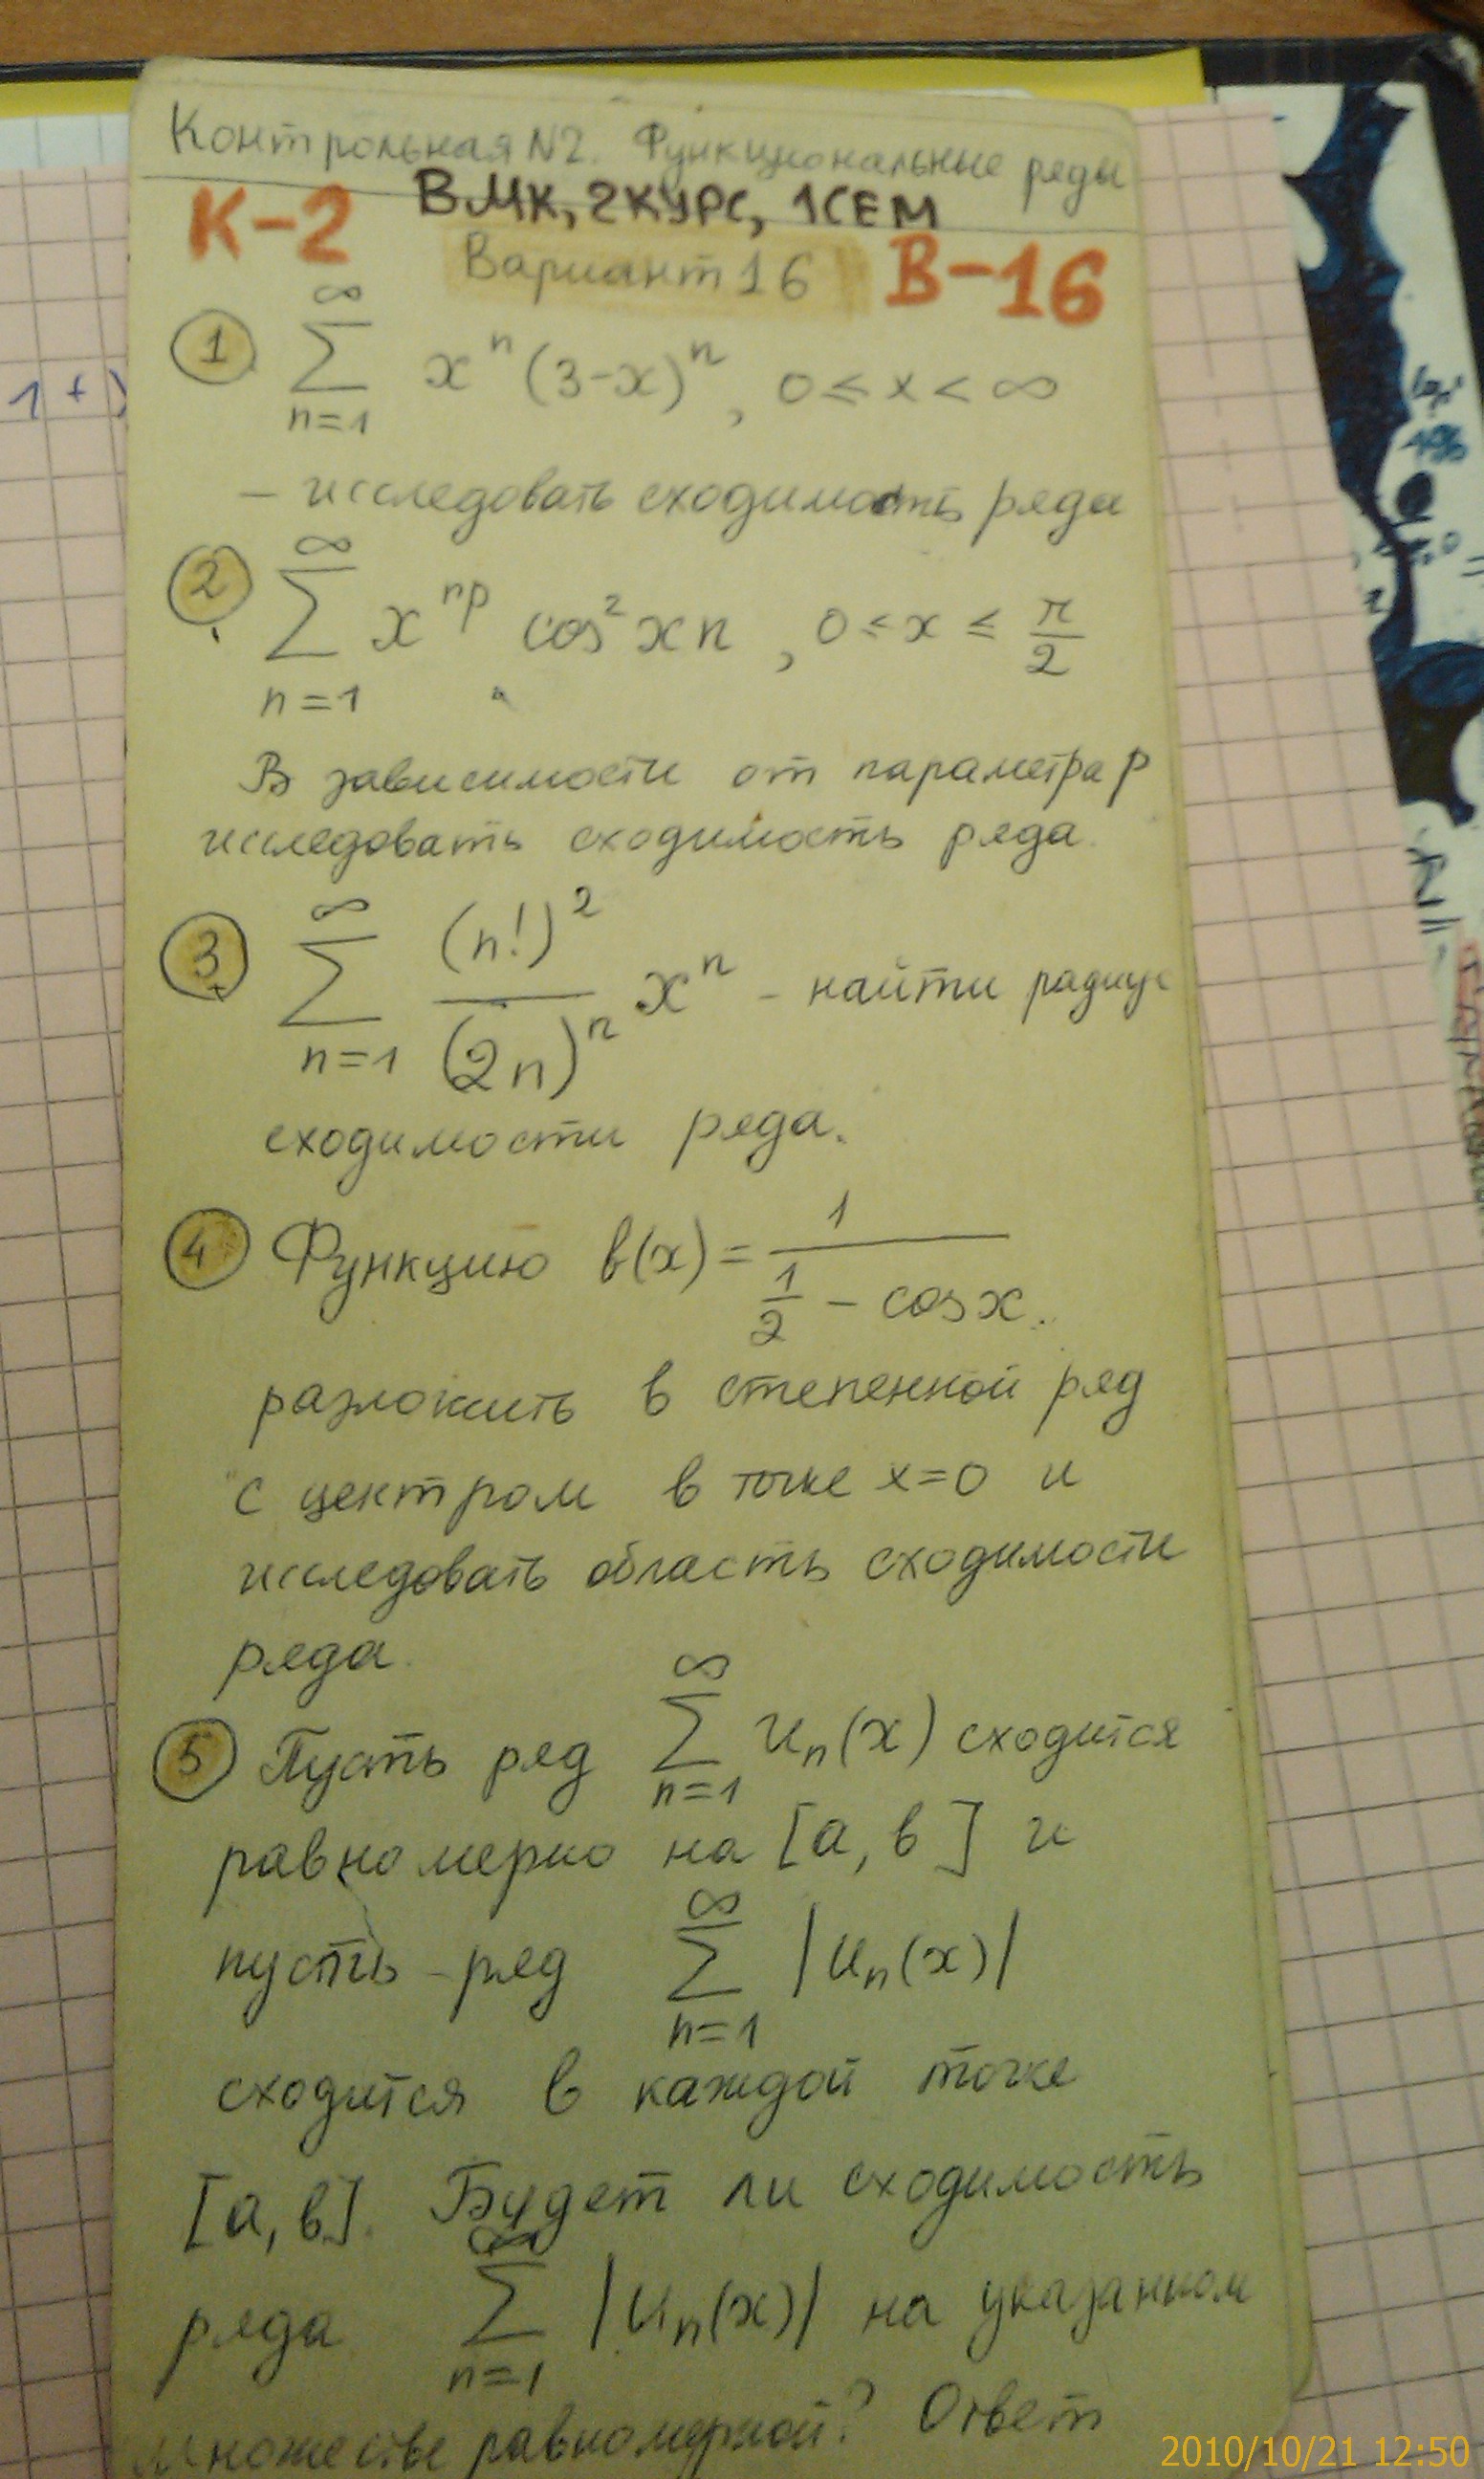 Контрольная №2. Функциональные ряды
К-2 ВМК, 2КУРС, 1СЕМ
Вариант 16 В-16
1 ∞ ∑ n=1 xⁿ(3-x)ⁿ, 0 ≤ x < ∞
- исследовать сходимость ряда
2 ∞ ∑ n=1 x^{np} cos² xn, 0 ≤ x ≤ π/2
В зависимости от параметра p
исследовать сходимость ряда.
3 ∞ ∑ n=1 (n!)²/(2n)ⁿ xⁿ - найти радиус
сходимости ряда.
4 Функцию b(x) = 1/(1/2 - cos x)
разложить в степенной ряд
с центром в точке x=0 и
исследовать область сходимости
ряда.
5 Пусть ряд ∞ ∑ n=1 uₙ(x) сходится
равномерно на [a, b] и
пусть ряд ∞ ∑ n=1 |uₙ(x)|
сходится в каждой точке
[a, b]. Будет ли сходимость
ряда ∞ ∑ n=1 |uₙ(x)| на указанном
множестве равномерной? Ответ
1 +
2010/10/21 12:50